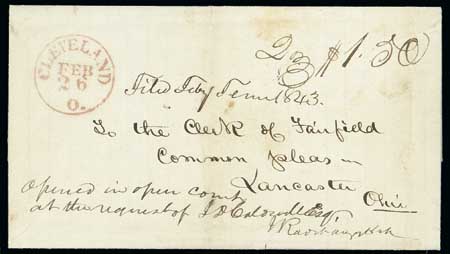 CLEVELAND
FEB
26
O.
$1.50
Filed Feby Term 1843.
To the Clerk of Fairfield
Common pleas in
Lancaster
Ohio
Opened in open court
at the request of Esq.